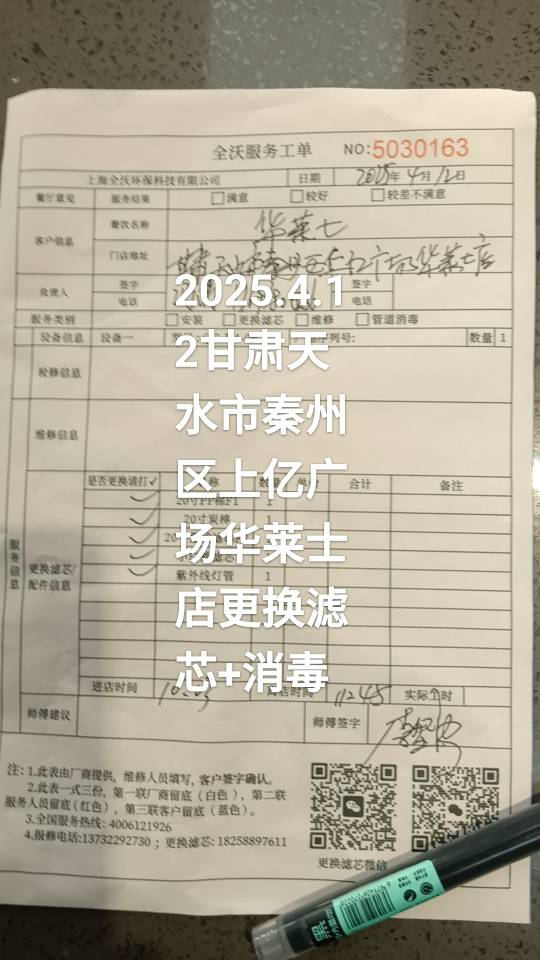 全沃服务工单 NO:5030163
上海全沃环保科技有限公司 日期 2025年4月12日
餐厅意见 服务结果 □满意 □较好 □较差不满意
客户信息 餐饮名称 华莱士
门店地址
负责人 签字 签字
电话 电话
服务类别 □安装 □更换滤芯 □维修 □管道消毒
设备信息 设备一 序列号: 数量 1
检修信息
维修信息
是否更换请打✓ 合计 备注
✓ 20寸PP棉F1 1
✓ 20寸炭棒
✓
✓
✓ 紫外线灯管 1
服务信息
更换滤芯/配件信息
进店时间 离店时间 11:45 实际工时
师傅建议 师傅签字
注: 1.此表由厂商提供, 维修人员填写, 客户签字确认。
2.此表一式三份, 第一联厂商留底(白色), 第二联
服务人员留底(红色), 第三联客户留底(蓝色)。
3.全国服务热线: 4006121926
4.报修电话:13732292730 ; 更换滤芯: 18258897611
更换滤芯微信
2025.4.1
2甘肃天
水市秦州
区上亿广
场华莱士
店更换滤
芯+消毒